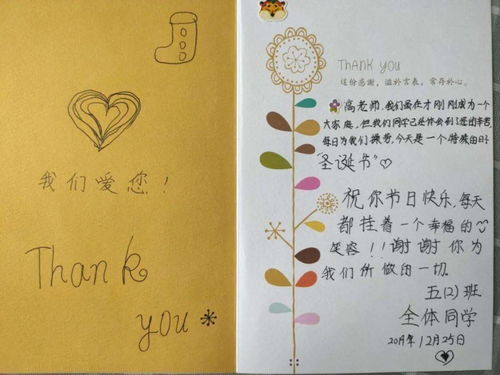 我们爱您!
Thank
you
Thank you
这份感谢,溢于言表,常存於心。
高老师,我们虽在才刚刚成为一个
大家庭,但我们同学已是体会到了您的辛苦
每日为我们操劳,今天是一个特殊的日子
"圣诞节"
祝你节日快乐,每天
都挂着一个幸福的
笑容!!谢谢你为
我们所做的一切
五(2)班
全体同学
2019年12月25日